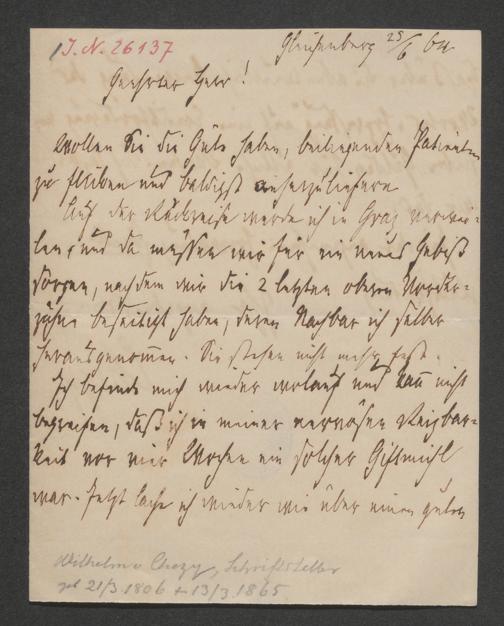 I. N. 26137
Gleichenberg 25/6 64
Geehrter Herr!
Wollen Sie die Güte haben, beiliegenden Patienten
zu und baldigst
Auf der Rückreise werde ich in Graz verwei-
len, und da müssen wir für ein neues Gebiß
sorgen, nachdem wir die 2 letzten oberen Vorder-
zähne beseitigt haben, deren Nachbar ich selber
herausgenommen. Sie stehen nicht mehr fest.
Ich befinde mich wieder wolauf und kan nicht
begreifen, daß ich in meiner nervösen Reizbar-
keit vor vier Wochen ein solcher Giftmichl
war. Jetzt lache ich wieder wie über einen guten
Wilhelm v Chezy, Schriftsteller
geb 21/3 1806 + 13/3 1865